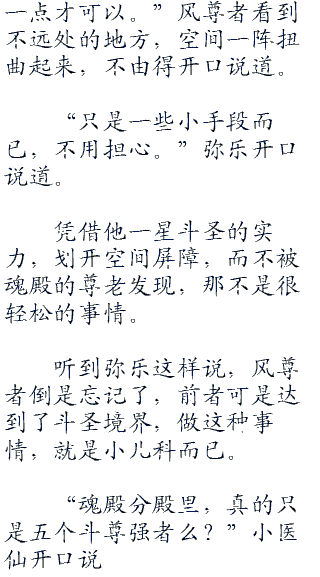 一点才可以。”风尊者看到
不远处的地方，空间一阵扭
曲起来，不由得开口说道。
“只是一些小手段而
已，不用担心。”弥乐开口
说道。
凭借他一星斗圣的实
力，划开空间屏障，而不被
魂殿的尊老发现，那不是很
轻松的事情。
听到弥乐这样说，风尊
者倒是忘记了，前者可是达
到了斗圣境界，做这种事
情，就是小儿科而已。
“魂殿分殿里，真的只
是五个斗尊强者么？”小医
仙开口说